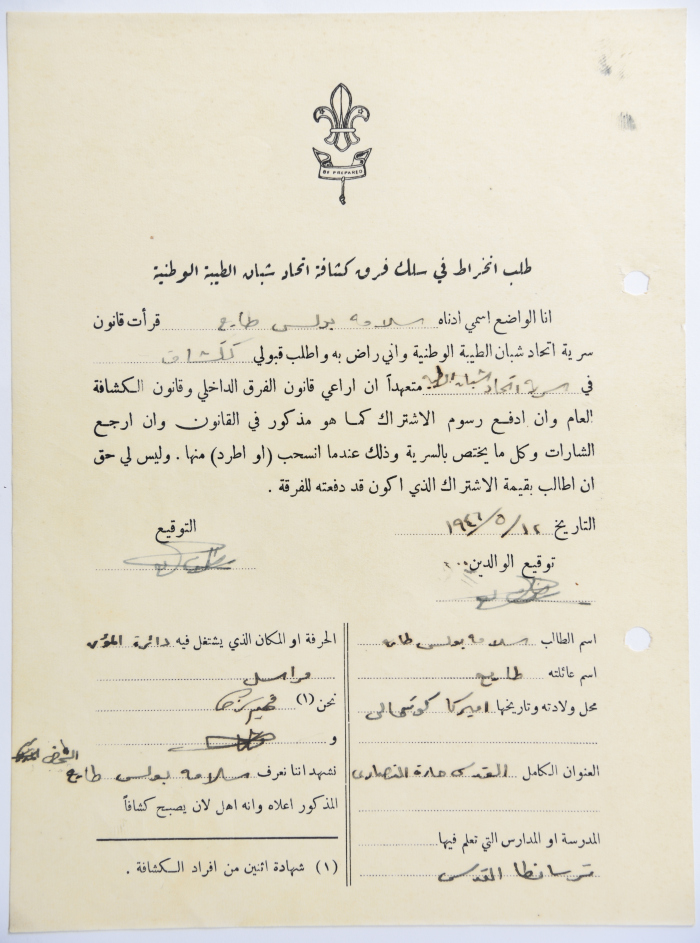 BE PREPARED
طلب انخراط في سلك فرق كشافة اتحاد شبان الطيبة الوطنية
انا الواضع اسمي ادناه سلامه بولس طايع قرأت قانون
سرية اتحاد شبان الطيبة الوطنية واني راض به واطلب قبولي ككشاف
في سرية اتحاد شبان الطيبة متعهداً ان اراعي قانون الفرق الداخلي وقانون الكشافة
العام وان ادفع رسوم الاشتراك كما هو مذكور في القانون وان ارجع
الشارات وكل ما يختص بالسرية وذلك عندما انسحب (او اطرد) منها . وليس لي حق
ان اطالب بقيمة الاشتراك الذي اكون قد دفعته للفرقة .
التاريخ ١٢/٥/١٩٤٦
التوقيع
توقيع الوالدين
اسم الطالب سلامه بولس طايع
اسم عائلته طايع
محل ولادته وتاريخها اميركا
العنوان الكامل القدس حارة النصارى
المدرسة او المدارس التي تعلم فيها
ترسانطا القدس
الحرفة او المكان الذي يشتغل فيه دائرة
مراسل
نحن (١)
و
نشهد اننا نعرف سلامه بولس طايع
المذكور اعلاه وانه اهل لان يصبح كشافاً
(١) شهادة اثنين من افراد الكشافة .